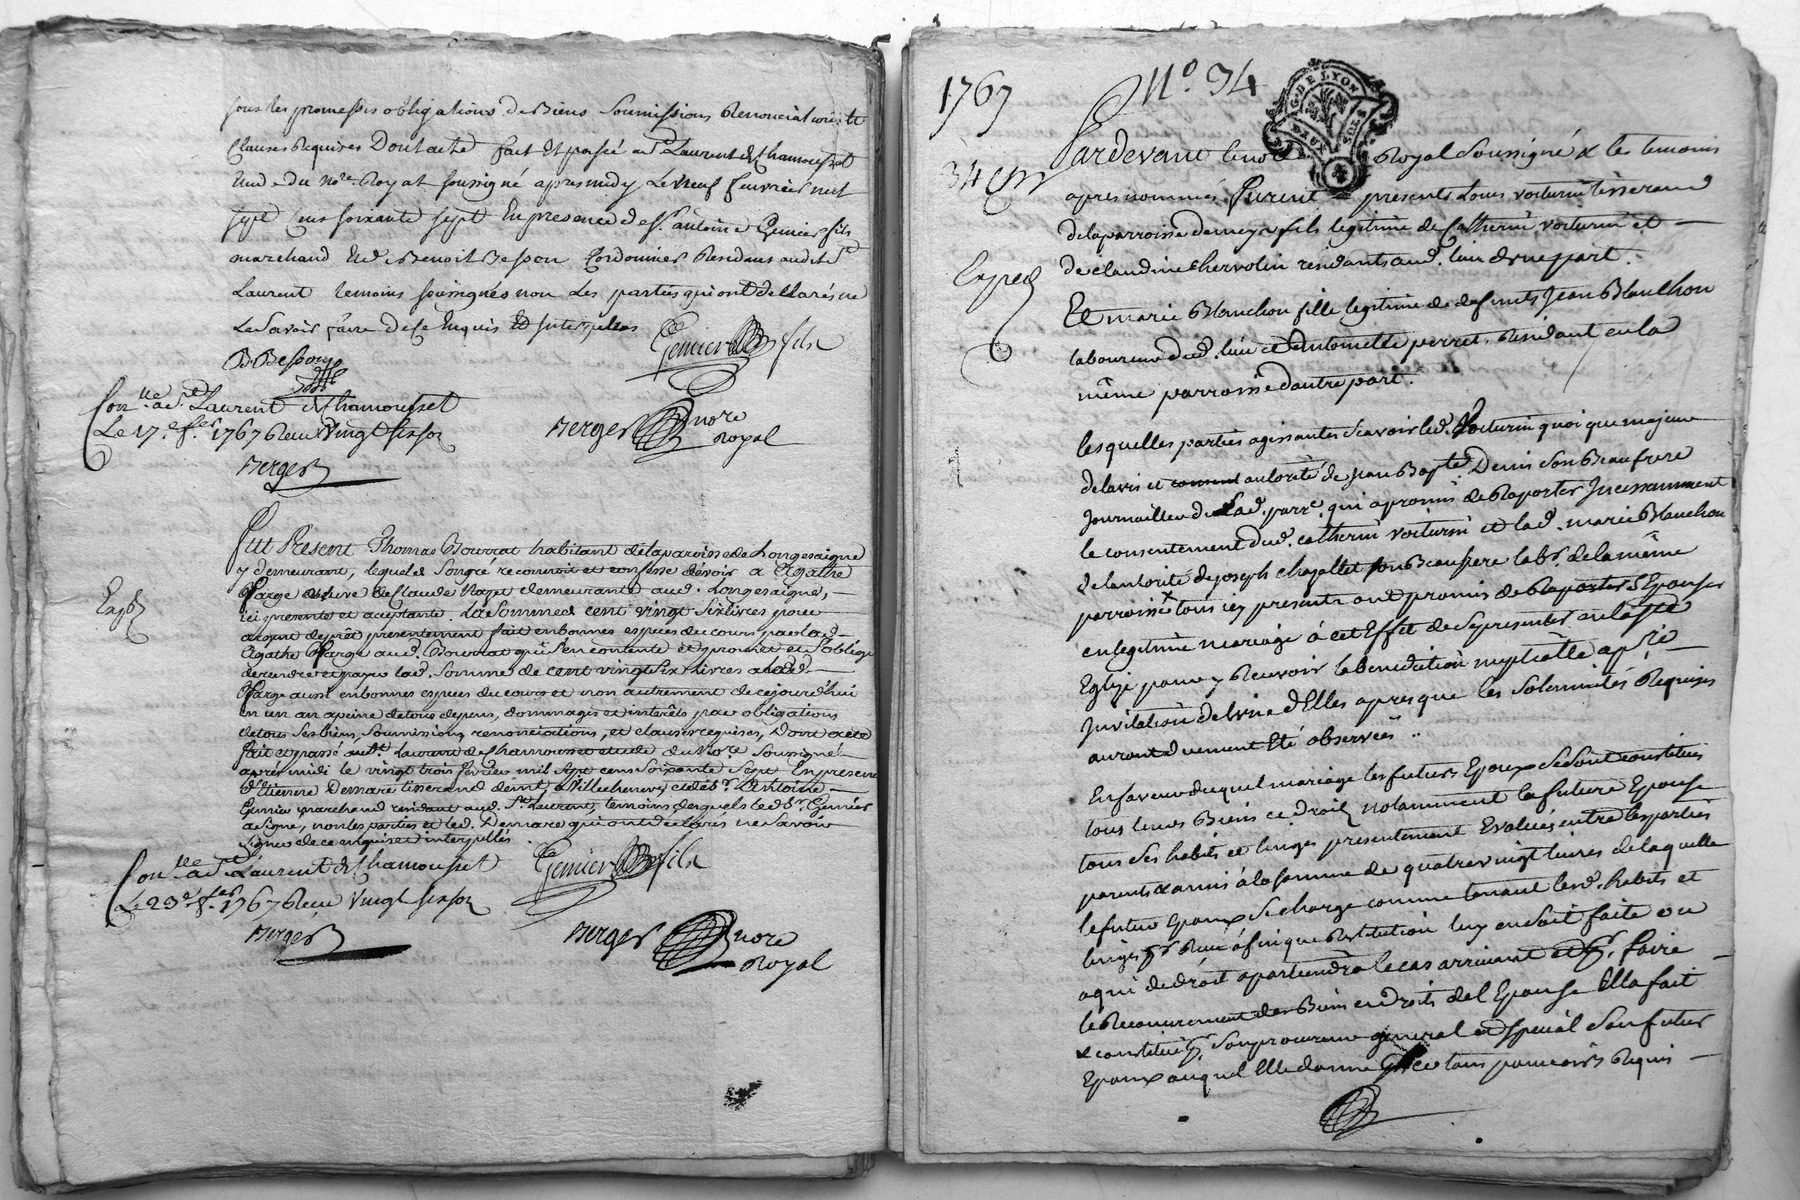 sous les promesses obligations de Biens soumissions Renonciations et
Clauses Requises Dont acte fait Et passé a St Laurent de Chamousset
Etude du Nore Royal soussigné apres midy Le neuf fevrier mil
sept cent soixante sept En presence de sr. antoine Genier fils
marchand Et de Benoit Besson Cordonnier Residans audit St
Laurent temoins soussignés non Les parties qui ont declaré ne
Le savoir faire De ce Enquis Et Interpellés
B Besson
Genier fils
Con.lle a St Laurent de Chamousset
Le 17.e fer. 1767 Reçu Vingt six sols
Berger
Berger nore
Royal
Exped
Fut Present Thomas Bourrat habitant de la paroisse de Longesaigne
y demeurant, lequel de son gré reconnoit et confesse devoir a Agathe
Farge veuve de Claude demeurante aud. Longesaigne, —
ici presente et aceptante. La Somme de cent vingt six livres pour
argent de prêt presentement fait en bonnes especes du cours par lad —
Agathe Farge aud. Bourrat qui s'en contente et promet et s'oblige
de rendre et payer lad. Somme de cent vingt six Livres a lad —
Farge aussi en bonnes especes du cours et non autrement de cejourdhui
en un an a peine de tous depens, dommages et interêts par obligations
de tous ses biens, soumissions, renonciations, et clauses requises, Dont acte
fait et passé aud St. Laurent de Chamousset etude du Nore. Soussigné —
après midi le vingt trois fevrier mil sept cent soixante sept En presence
d'Etienne Demare tisserand de Villechenève et de sr. Antoine —
Genier marchand residant aud. St. Laurent, temoins desquels led sr. Genier
a signé, non les parties et led. Demare qui ont declarés ne savoir
signer de ce enquis et interpellés
Con.lle a St Laurent de Chamousset
Le 23.e fer. 1767 Reçu Vingt six sols
Genier fils
Berger
Berger nore
Royal
1767
No. 34
G. DE LYON
DEUX SOLS
34 em
Pardevant le no Royal soussigné & les temoins
apres nommés. Furent presents Louis voiturin tisserand
de la parroisse de meys fils legitime de Catherin voiturin et —
de claudine chervolin residants aud. lieu d'une part.
Exped
Et marie Blanchon fille legitime de defunts Jean Blanchon
laboureur dud. lieu et d'Antoinette perret, Residant en la
même parroisse d'autre part.
lesquelles parties agissantes scavoir led. Voiturin quoi que majeur
de lavis et autorité de Jean Bapte Denis son Beaufrere
Journaillier de lad. parre. qui a promis de Raporter Incessamment
le consentement dud. catherin voiturin et lad. marie Blanchon
de lautorité de joseph chapallet son Beaufrere labr. de la même
parroisse tous icy presents ont promis de s'Epouser
en legitime mariage à cet Effet de se presenter en la Ste
Eglise pour y Recevoir la Benediction nuptialle a la pre
Invitation de lun ou d'Elles apres que les solemnités Requises
auront duement Eté observées ..
En faveur duquel mariage les futurs Epoux se sont constitués
tous leurs Biens et droits notamment la future Epouse
tous ses habits et linges presentement Evalués entre les parties
parents & amis à la somme de quatrevingt livres de laquelle
le futur Epoux se charge comme tenant lesd. habits et
linges pr. Reçu à fin que Restitution luy en soit faite ou
a qui de droit apartiendra le cas arrivant et pr. faire —
le Recouvrement des Biens et droits de l'Epouse Ella fait
& constitué pr. son procureur general et special son futur
Epoux auquel Elle donne tous pouvoirs Requis —